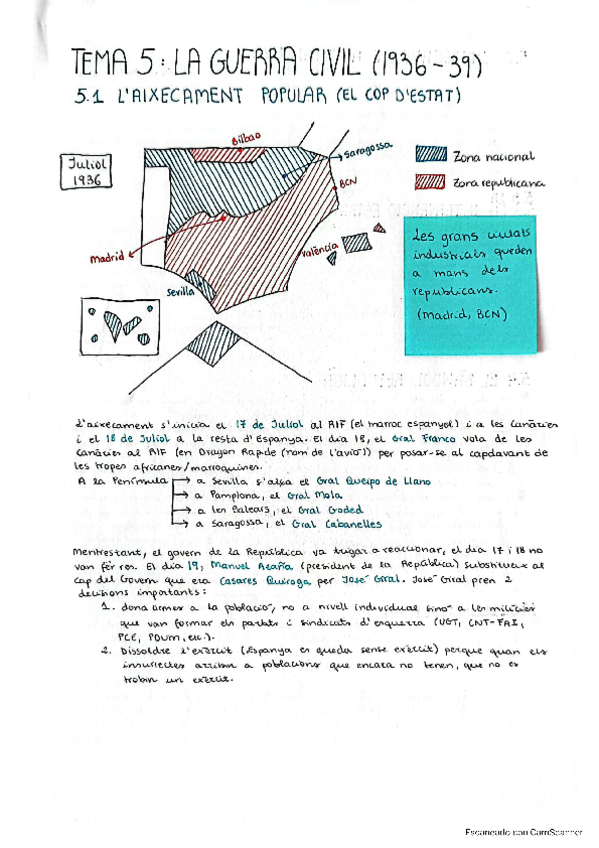 TEMA 5: LA GUERRA CIVIL (1936-39)
5.1 L'AIXECAMENT POPULAR (EL COP D'ESTAT)
Juliol
1936
Bilbao
Saragossa
BCN
Madrid
València
Sevilla
Zona nacional
Zona republicana
Les grans ciutats
industrials queden
a mans dels
republicans.
(Madrid, BCN)
L'aixecament s'inicia el 17 de Juliol al RIF (el marroc espanyol) i a les Canàries
i el 18 de Juliol a la resta d'Espanya. El dia 18, el Gral Franco vola de les
Canàries al RIF (en Dragon Rapide (nom de l'avió)) per posar-se al capdavant de
les tropes africanes/marroquines.
A la Península → a Sevilla s'alça el Gral Queipo de Llano
→ a Pamplona, el Gral Mola
→ a les Balears, el Gral Goded
→ a Saragossa, el Gral Cabanelles
Mentrestant, el govern de la República va tugar a reaccionar, el dia 17 i 18 no
van fer res. El dia 19, Manuel Azaña (president de la República) substitueix al
Cap del Govern que era Casares Quiroga per José Giral. José Giral pren 2
decisions importants:
1. dona armes a la població, no a nivell individual sinó a les milícies
que van formar els partits i sindicats d'esquerra (UGT, CNT-FAI,
PCE, POUM, etc.).
2. Dissoldre l'exèrcit (Espanya es queda sense exèrcit) perque quan els
insurrectes arribin a poblacions que encara no tenen, que no es
trobin un exèrcit.
Escaneado con CamScanner